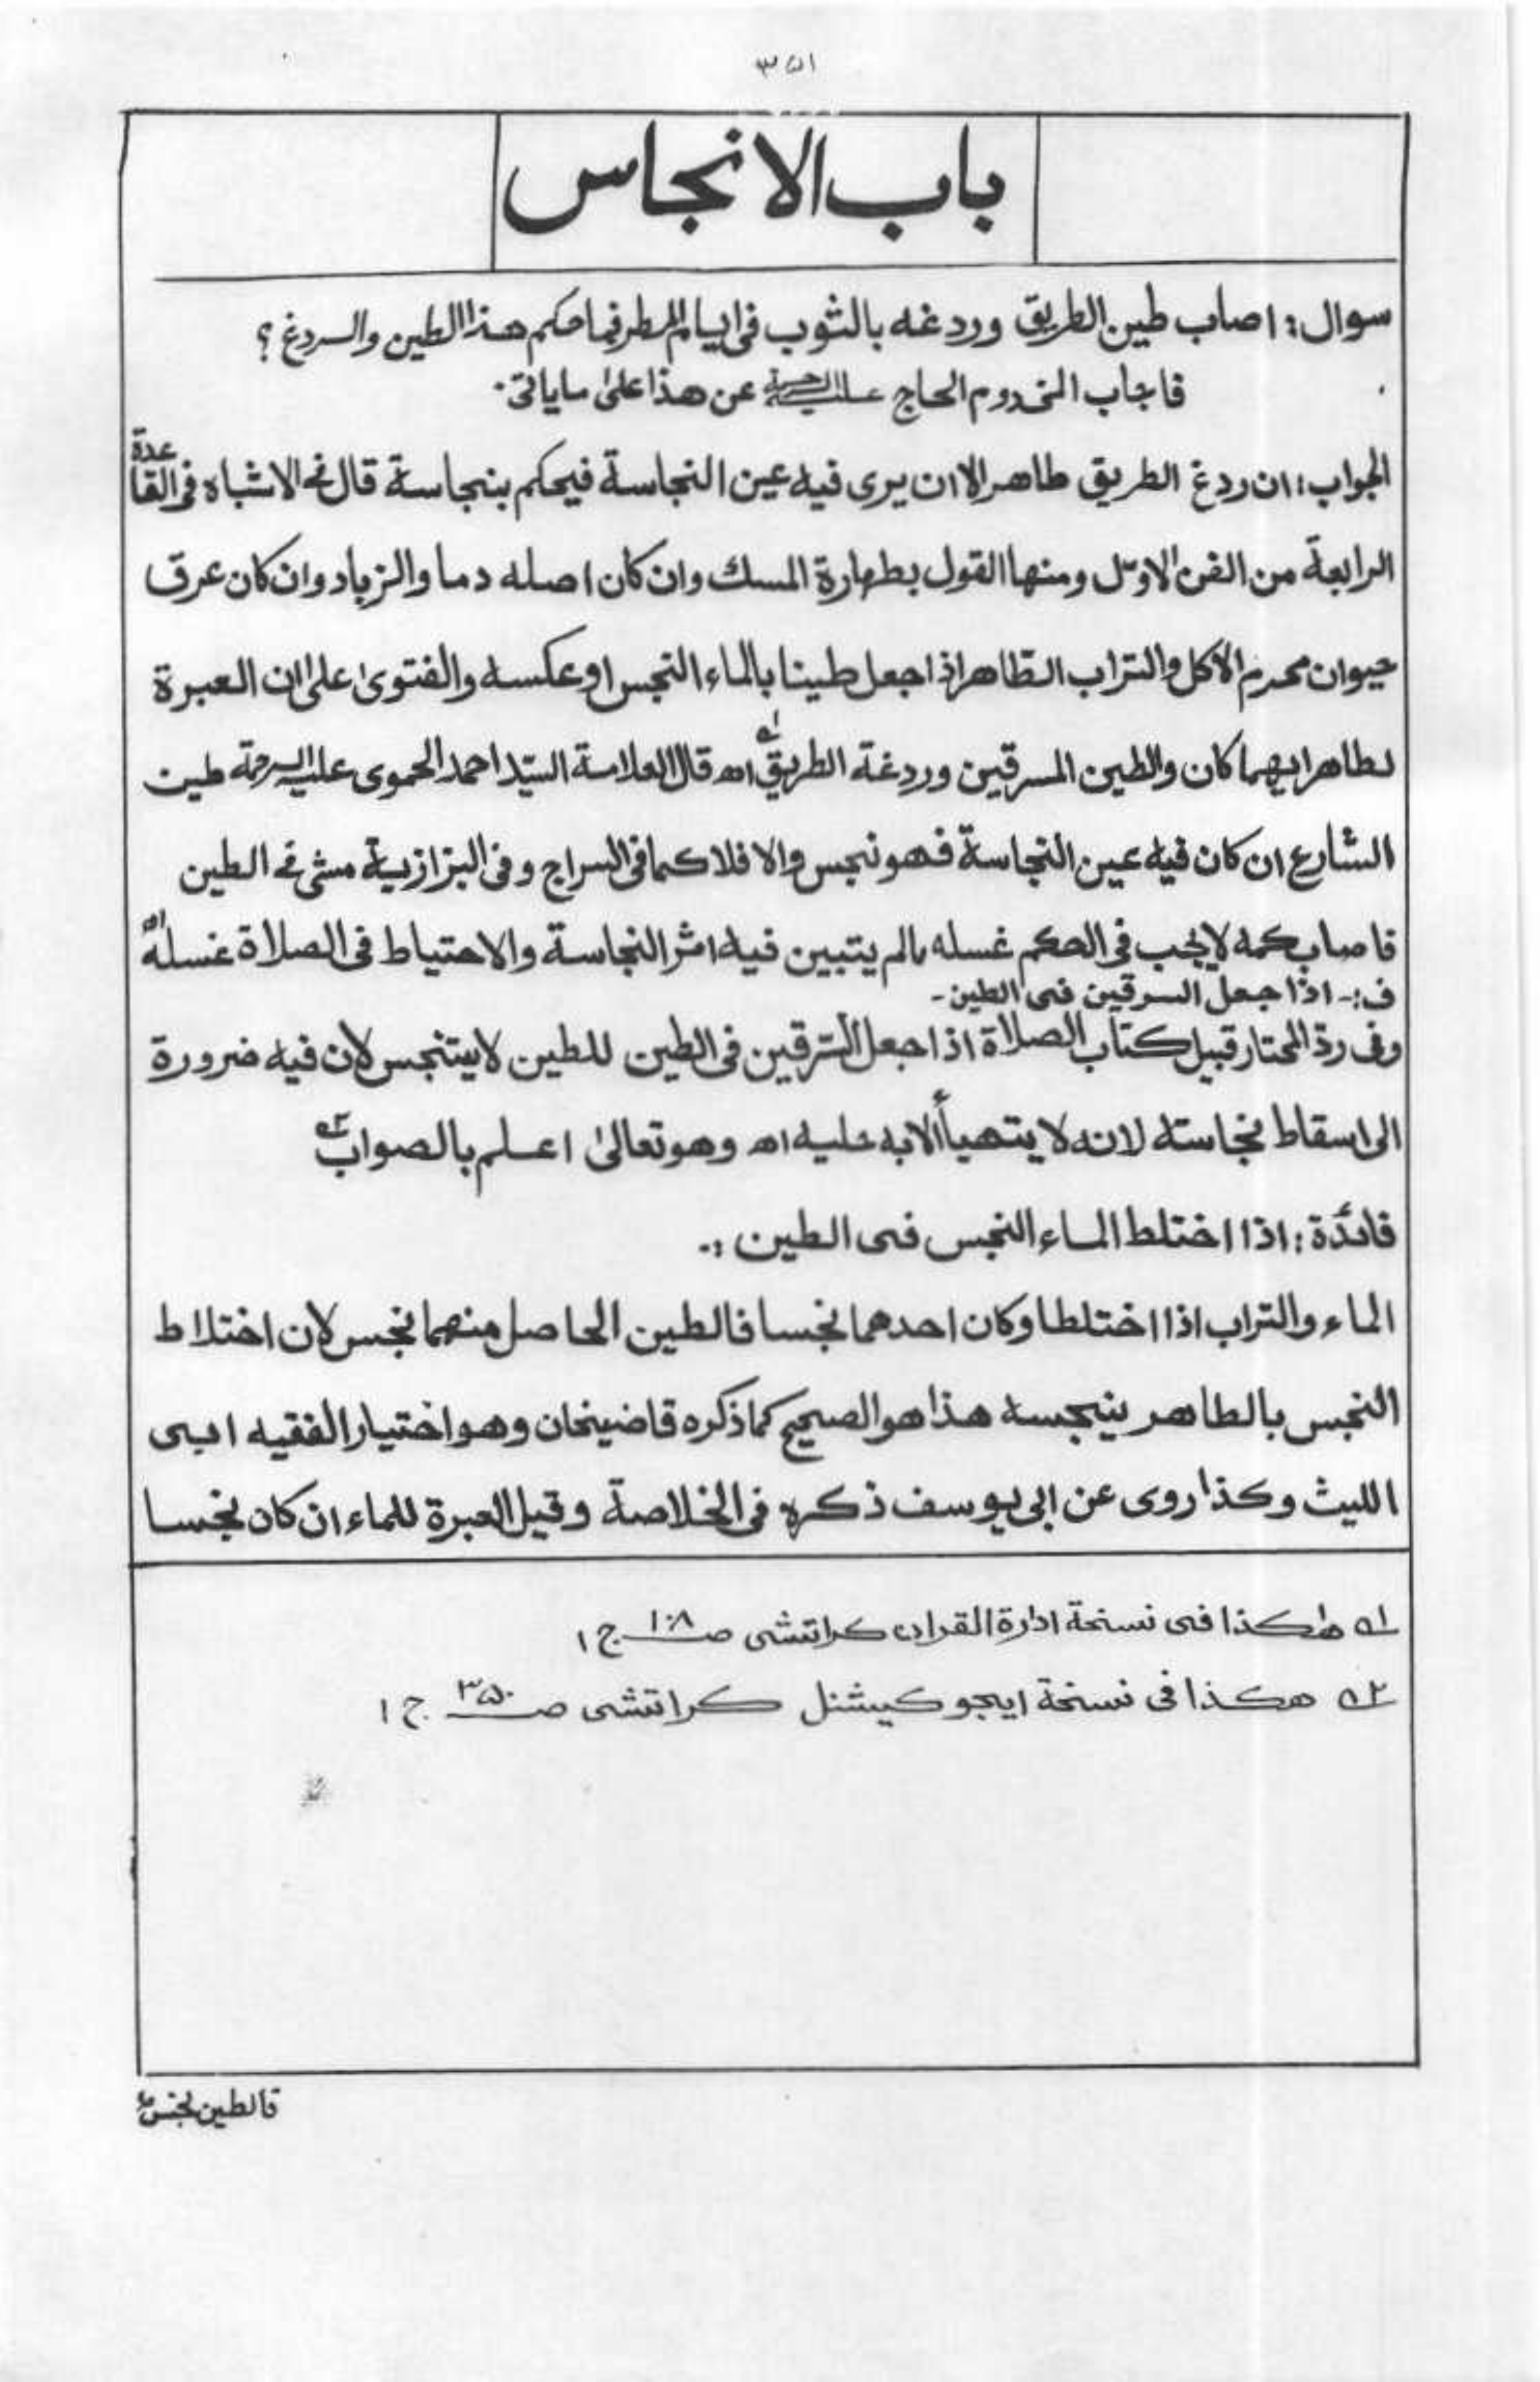 ٣٥١
باب الانجاس
سوال: اصاب طين الطريق وردغه بالثوب فى ايام المطر فما حكم هذا الطين والردغ؟
فاجاب المخدوم الحاج عليه الرحمة عن هذا على ماياتى.
الجواب: ان ردغ الطريق طاهر الا ان يرى فيه عين النجاسة فيحكم بنجاسة قال فى الاشباه فى القاعدة
الرابعة من الفن الاوّل ومنها القول بطهارة المسك وان كان اصله دما والزباد وان كان عرق
حيوان محرم الاكل والتراب الطاهر اذا جعل طينا بالماء النجس او عكسه والفتوىٰ علىٰ ان العبرة
لطاهر ايهما كان والطين المسرقين وردغة الطريق ١ه اه قال العلامة السيّد احمد الحموى عليه الرحمة طين
الشارع ان كان فيه عين النجاسة فهو نجس والا فلا كما فى السراج وفى البزازية مشى فى الطين
فاصاب كمه لا يجب فى الحكم غسله مالم يتبين فيه اثر النجاسة والاحتياط فى الصلاة غسله اه
ف:- اذا جعل السرقين فى الطين-
وفى ردّ المحتار قبيل كتاب الصلاة اذا جعل السّرقين فى الطين للطين لايتنجس لان فيه ضرورة
الى اسقاط نجاسته لانه لا يتهيأ الا به حليه اه وهو تعالىٰ اعلم بالصواب ٢ه
فائدة: اذا اختلط الماء النجس فى الطين:.
الماء والتراب اذا اختلطا وكان احدهما نجسا فالطين الحاصل منهما نجس لان اختلاط
النجس بالطاهر ينجسه هذا هو الصحيح كما ذكره قاضيخان وهو اختيار الفقيه ابى
الليث وكذا روى عن ابى يوسف ذكره فى الخلاصة وقيل العبرة للماء ان كان نجسا
١ه هٰكذا فى نسخة ادارة القران كراتشى صـ ١٠٨ ج ١
٢ه هكذا فى نسخة ايجوكيشنل كراتشى صـ ٣٥٠ ج ١
فالطين نجس